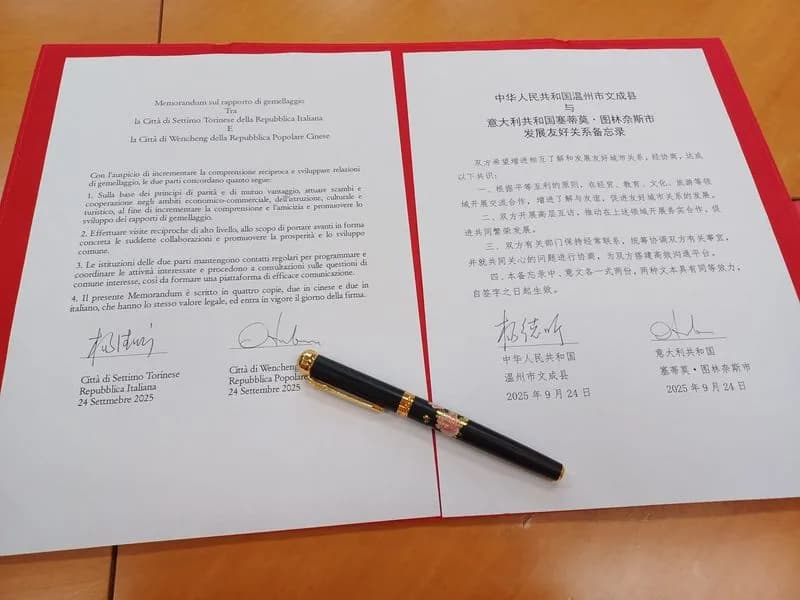 Memorandum sul rapporto di gemellaggio
Tra
la Città di Settimo Torinese della Repubblica Italiana
E
la Città di Wencheng della Repubblica Popolare Cinese
Con l'auspicio di incrementare la comprensione reciproca e sviluppare relazioni
di gemellaggio, le due parti concordano quanto segue:
1. Sulla base dei principi di parità e di mutuo vantaggio, attuare scambi e
cooperazione negli ambiti economico-commerciale, dell'istruzione, culturale e
turistico, al fine di incrementare la comprensione e l'amicizia e promuovere lo
sviluppo dei rapporti di gemellaggio.
2. Effettuare visite reciproche di alto livello, allo scopo di portare avanti in forma
concreta le suddette collaborazioni e promuovere la prosperità e lo sviluppo
comune.
3. Le istituzioni delle due parti mantengono contatti regolari per programmare e
coordinare le attività interessate e procedono a consultazioni sulle questioni di
comune interesse, così da formare una piattaforma di efficace comunicazione.
4. Il presente Memorandum è scritto in quattro copie, due in cinese e due in
italiano, che hanno lo stesso valore legale, ed entra in vigore il giorno della firma.
Città di Settimo Torinese
Repubblica Italiana
24 Settmebre 2025
Città di Wencheng
Repubblica Popolare
24 Settembre 2025
中华人民共和国温州市文成县
与
意大利共和国塞蒂莫·图林奈斯市
发展友好关系备忘录
双方希望增进相互了解和发展友好城市关系，经协商，达成
以下共识：
一、根据平等互利的原则，在经贸、教育、文化、旅游等领
域开展交流合作，增进了解与友谊，促进友好城市关系的发展。
二、双方开展高层互访，推动在上述领域开展务实合作，促
进共同繁荣发展。
三、双方有关部门保持经常联系，统筹协调双方有关事宜，
并就共同关心的问题进行协商，为双方搭建高效沟通平台。
四、本备忘录中、意文各一式两份，两种文本具有同等效力，
自签字之日起生效。
杨德听
中华人民共和国
温州市文成县
2025 年 9 月 24 日
意大利共和国
塞蒂莫·图林奈斯市
2025 年 9 月 24 日